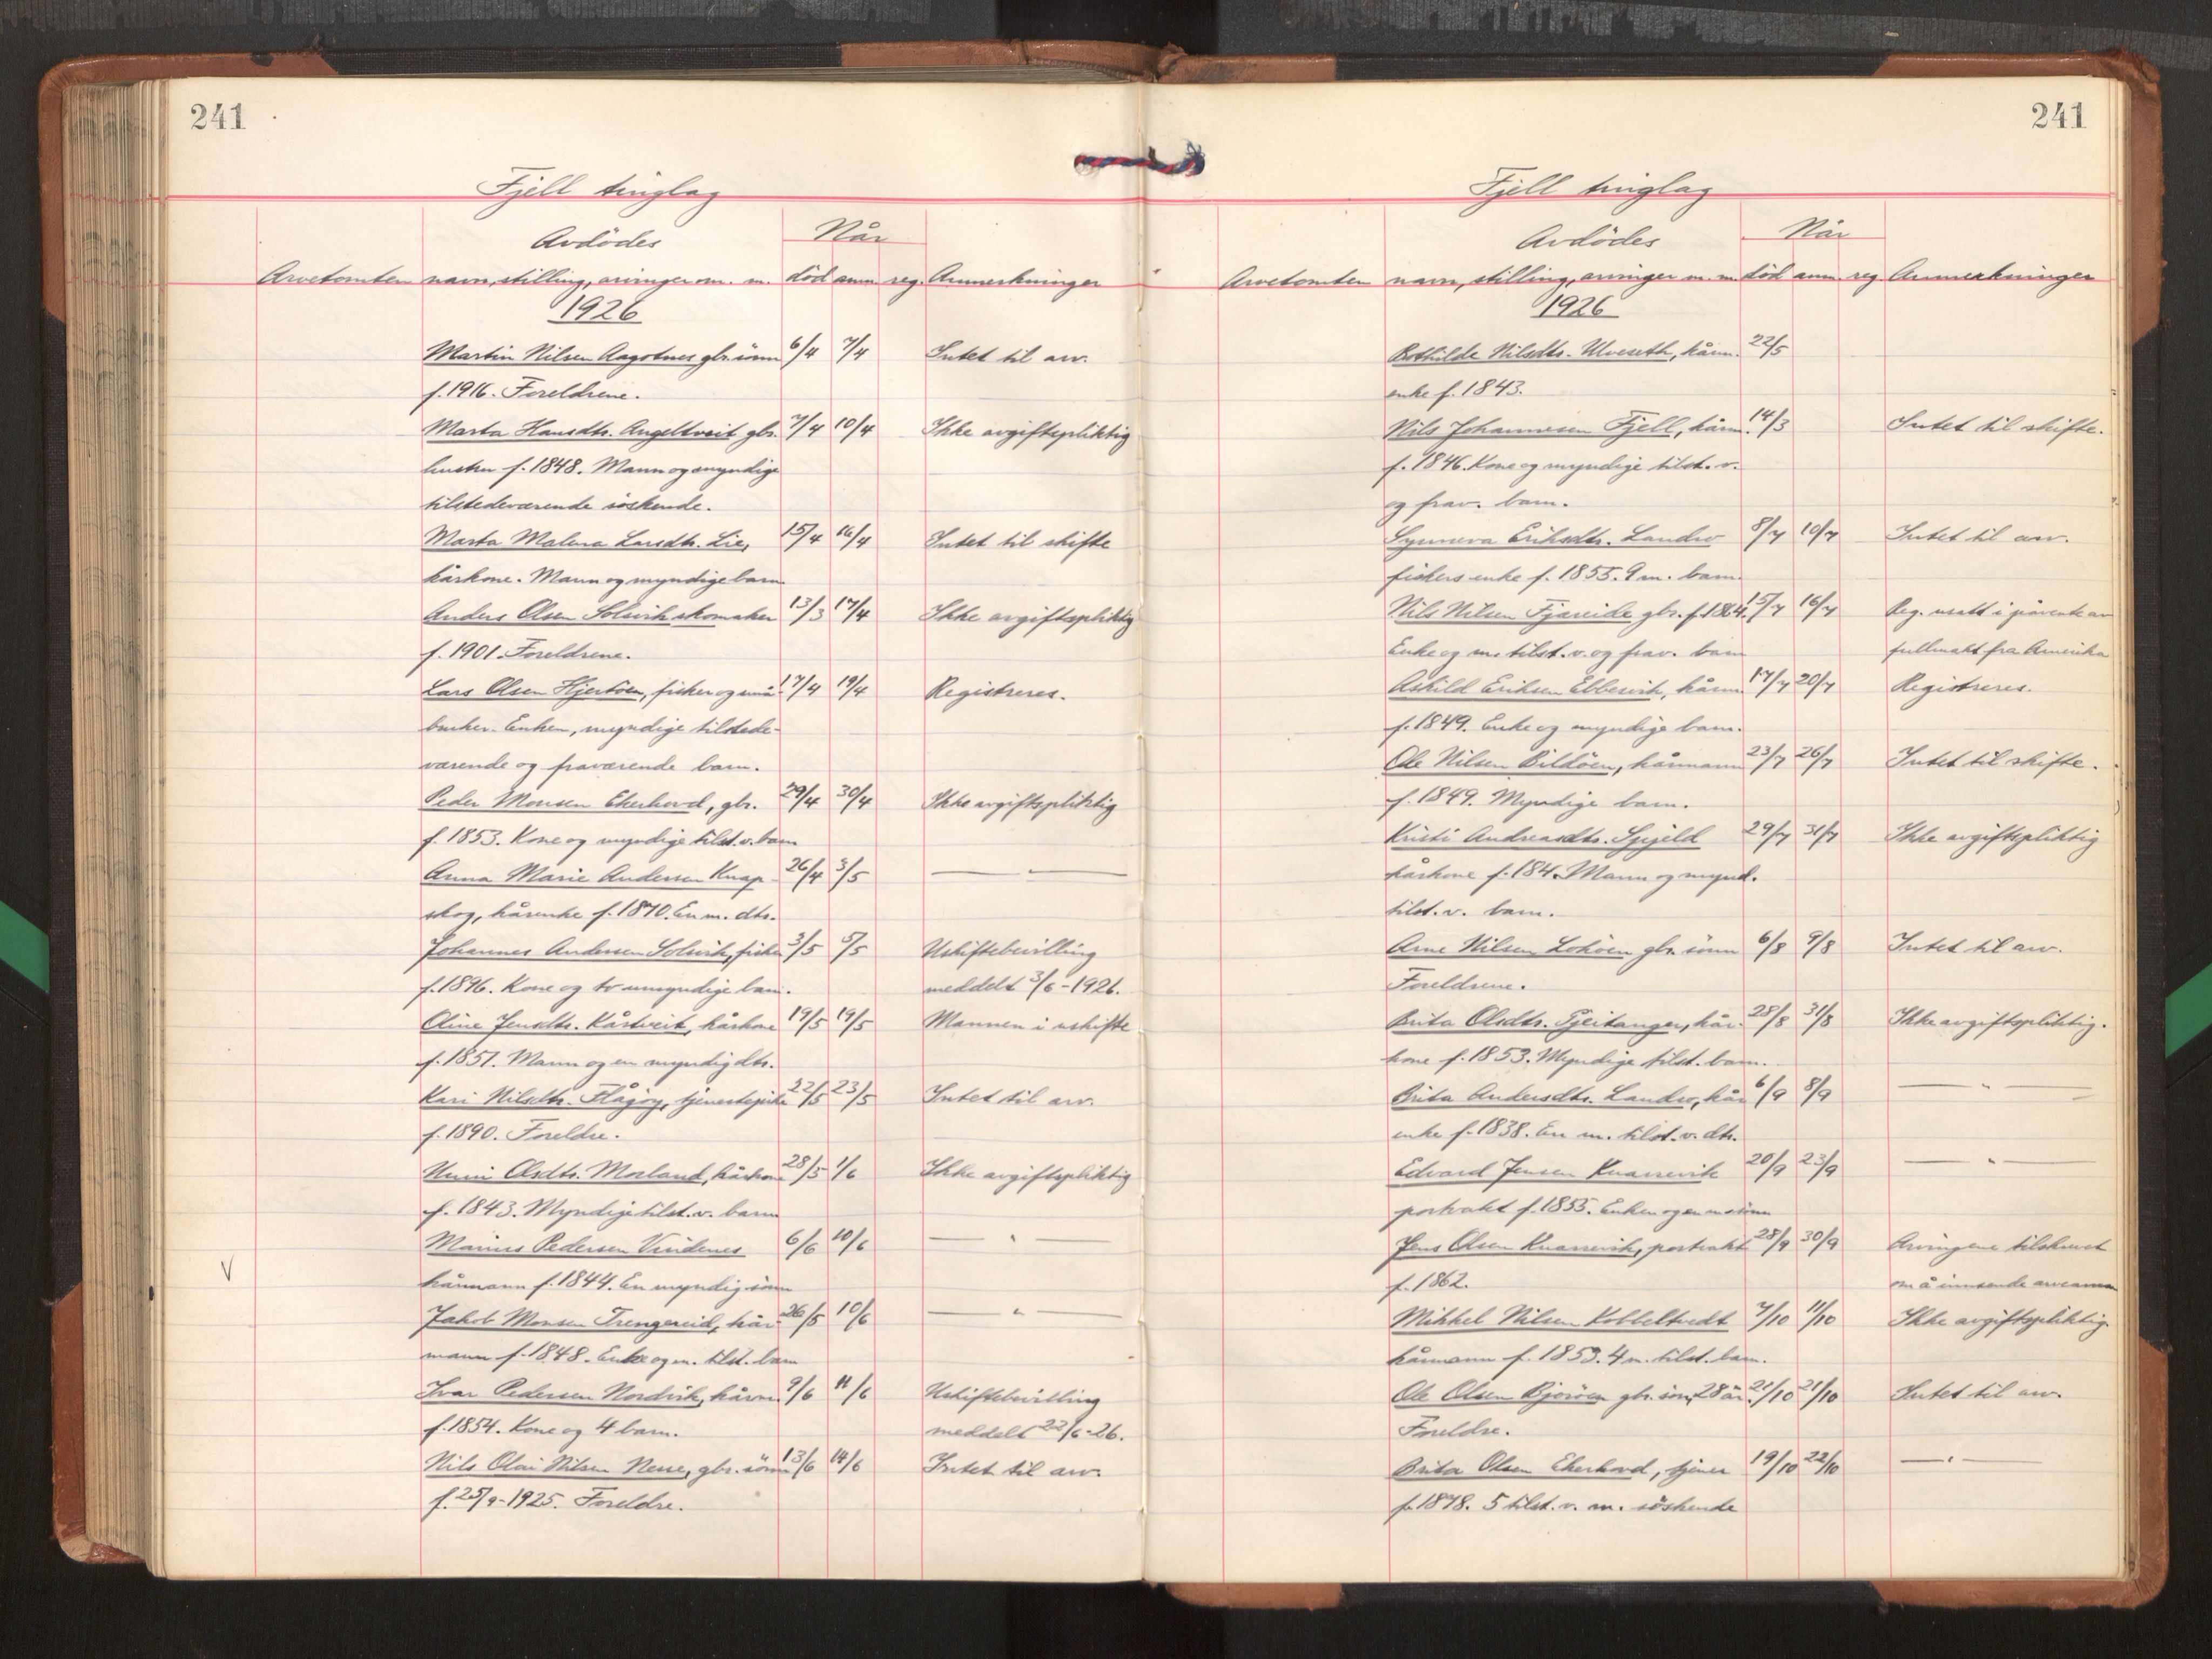 241
Fjell tinglag
Avdödes
Når
Arvetomten navn, stilling, arvinger m. m. död anm. reg. Anmerkninger
1926
Martin Nilsen Aagotnes gbr. sönn 6/4 7/4 Intet til arv.
f. 1916. Foreldrene.
Marta Hansdtr. Angeltveit gbr. 7/4 10/4 Ikke avgiftspliktig
hustru f. 1848. Mann og myndige
tilstedeværende söskende.
Marta Malena Larsdtr. Lie, 15/4 16/4 Intet til skifte
kårkone. Mann og myndige barn
Anders Olsen Solsvik skomaker 13/3 17/4 Ikke avgiftspliktig
f. 1901. Foreldrene.
Lars Olsen Hjertöen, fisker og små- 17/4 19/4 Registreres.
bruker. Enken, myndige tilstede-
værende og fraværende barn.
Peder Monsen Ekerhovd, gbr. 29/4 30/4 Ikke avgiftspliktig
f. 1853. Kone og myndige tilst. v. barn
Anna Marie Andersen Knap- 26/4 3/5 — " —
skog, kårenke f. 1870. En m. dtr.
Johannes Andersen Solsvik, fisker 3/5 5/5 Uskiftebevilling
f. 1896. Kone og to umyndige barn. meddelt 3/6-1926.
Oline Jensdtr. Kårtveit, kårkone 19/5 19/5 Mannen i uskifte
f. 1851. Mann og en myndig dtr.
Kari Nilsdtr. Flågöy, tjenestepike 22/5 23/5 Intet til arv.
f. 1890. Foreldre.
Olsdtr. Morland, kårkone 28/5 1/6 Ikke avgiftspliktig
f. 1843. Myndige tilst. v. barn
Marius Pedersen Vindenes 6/6 10/6 — " —
V
kårmann f. 1844. En myndig sönn
Jakob Monsen Trengereid, kår- 26/5 10/6 — " —
mann f. 1848. Enke og m. tilst. barn
Ivar Pedersen Nordvik, kårm. 9/6 11/6 Uskiftebevilling
f. 1854. Kone og 4 barn. meddelt 22/6-26.
Nils Olai Nilsen Nesse, gbr. sönn 13/6 14/6 Intet til arv.
f. 25/9-1925. Foreldre.
241
Fjell tinglag
Avdödes
Når
Arvetomten navn, stilling, arvinger m. m. död anm. reg. Anmerkninger
1926
Bothilde Nilsdtr. Ulveseth, kårm. 22/5
enke f. 1843.
Nils Johannesen Fjell, kårm. 14/3 Intet til skifte.
f. 1846. Kone og myndige tilst. v.
og frav. barn.
Synneva Eriksdtr. Landro 8/7 10/7 Intet til arv.
fiskers enke f. 1855. 9 m. barn.
Nils Nilsen Fjæreide gbr. f. 1864. 15/7 16/7 Reg. utsatt i påvente av
Enke og m. tilst. v. og frav. barn fullmakt fra Amerika
Askild Eriksen Ebbesvik, kårm. 17/7 20/7 Registreres.
f. 1849. Enke og myndige barn.
Ole Nilsen Bildöen, kårmann 23/7 26/7 Intet til skifte.
f. 1849. Myndige barn.
Kristi Andreasdtr. Spjeld 29/7 31/7 Ikke avgiftspliktig
kårkone f. 184. Mann og mynd.
tilst. v. barn.
Arne Nilsen Loköen gbr. sönn 6/8 9/8 Intet til arv.
Foreldrene.
Brita Olsdtr. Tjeitanger, kår- 28/8 31/8 Ikke avgiftspliktig.
kone f. 1853. Myndige tilst. barn.
Brita Andersdtr. Landro, kår 6/9 8/9 — " —
enke f. 1838. En m. tilst. v. dtr.
Edvard Jensen Knarrevik 20/9 23/9 — " —
portvakt f. 1855. Enken og en m. sönn
Jens Olsen Knarrevik, portvakt 28/9 30/9 Arvingene tilskrevet
f. 1862. om å innsende arveanm
Mikkel Nilsen Kobbeltvedt 7/10 11/10 Ikke avgiftspliktig.
kårmann f. 1853. 4 m. tilst. barn.
Ole Olsen Bjoröen gbr. sön, 28 år. 21/10 21/10 Intet til arv.
Foreldre.
Brita Olsen Ekerhovd, tjener 19/10 22/10 — " —
f. 1878. 5 tilst. v. m. söskende